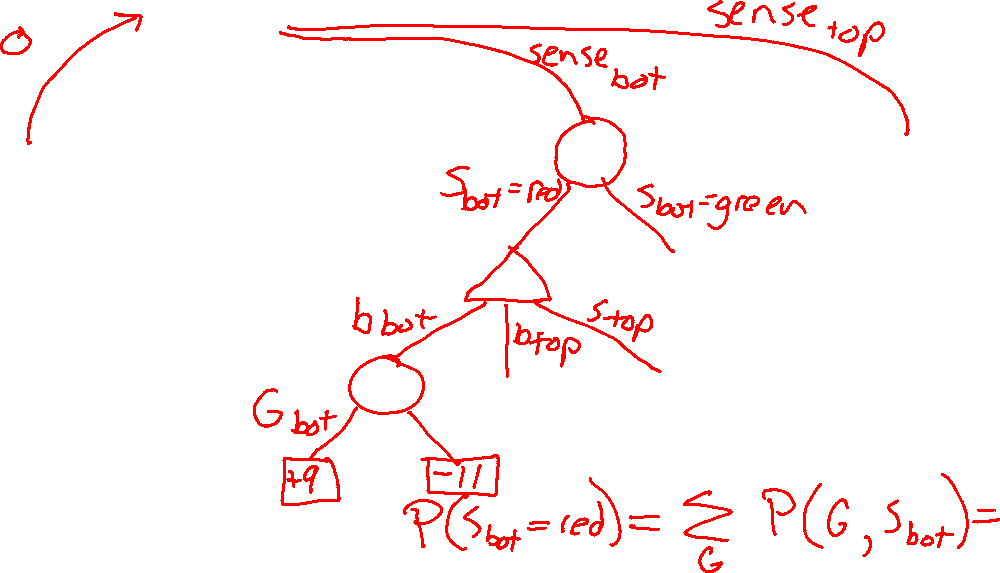 sense top
0
sense bot
S bot = red
S bot = green
b bot
b top
s top
G bot
+9
-11
P(S bot = red) = Σ G P(G, S bot) =